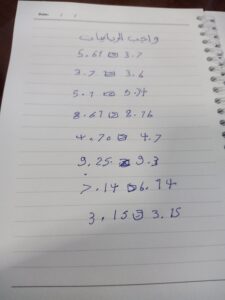 Date: / /
واجب الرياضيات
5.67 3.7
3.7 3.6
5.7 5.74
8.67 8.76
4.70 4.7
9.25 9.3
7.14 6.74
3.15 3.15